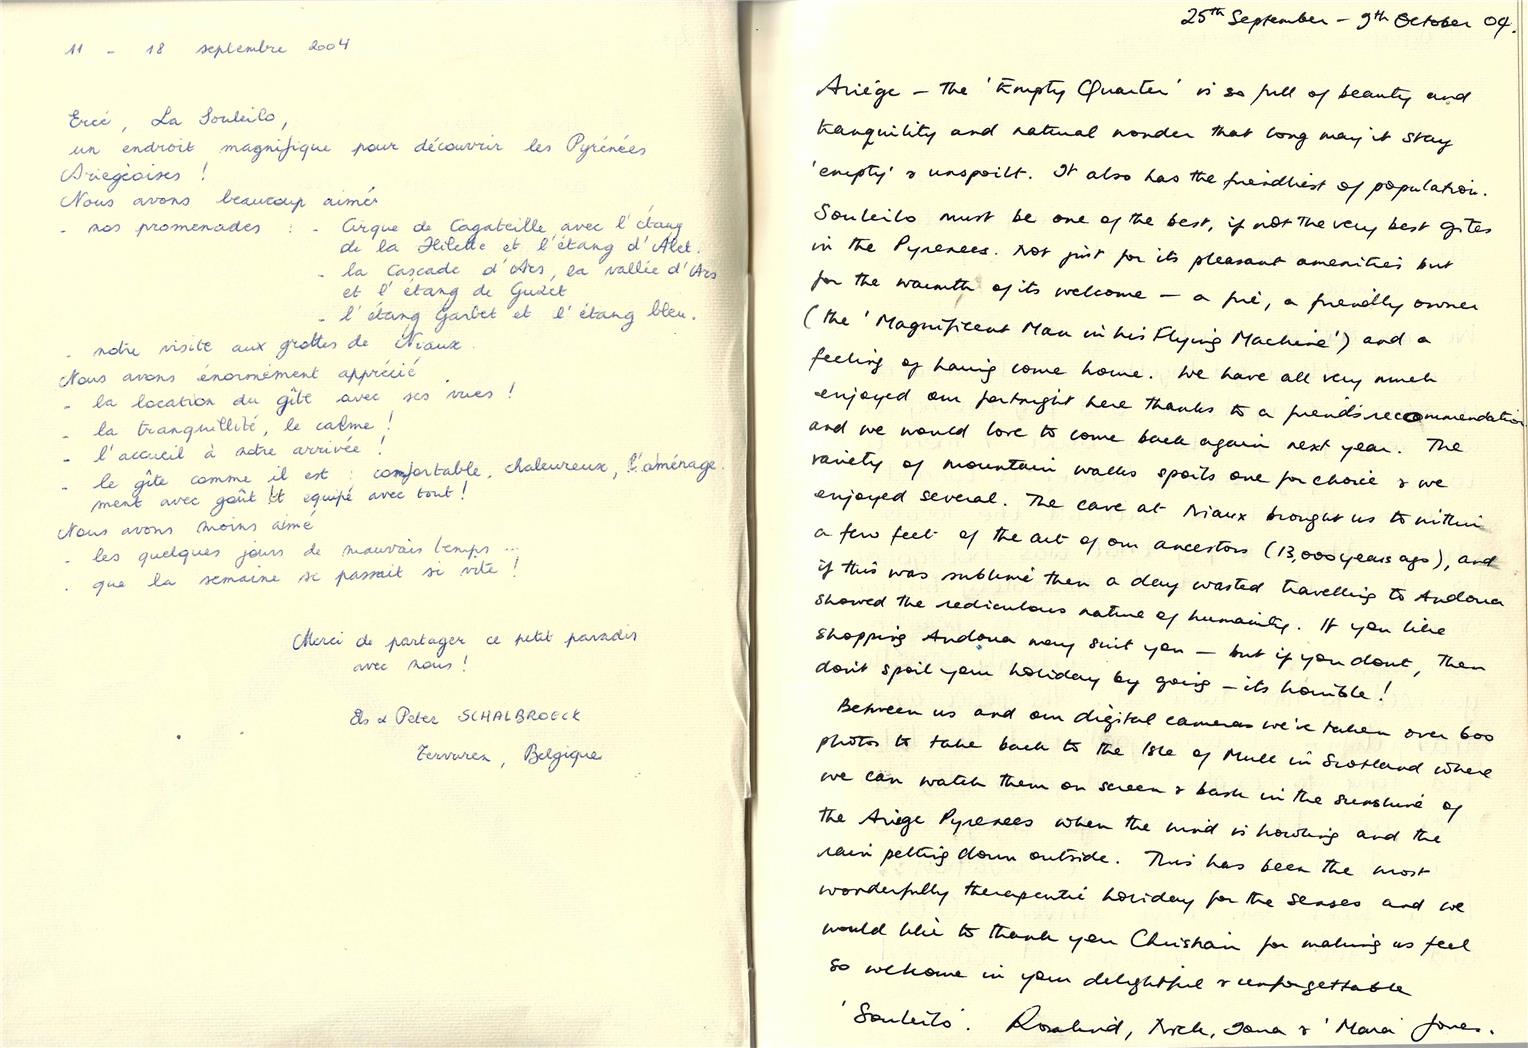 11 - 18 septembre 2004
Ercé, La Souleilo,
un endroit magnifique pour découvrir les Pyrénées
Ariégeoises !
Nous avons beaucoup aimé
- nos promenades : - Cirque de Cagateille avec l'étang
de la Hilette et l'étang d'Alet.
- la Cascade d'Ars, la vallée d'Ars
et l'étang de Guzet
- l'étang Garbet et l'étang bleu.
- notre visite aux grottes de Niaux.
Nous avons énormément apprécié
- la location du gîte avec ses vues !
- la tranquillité, le calme !
- l'accueil à notre arrivée !
- le gîte comme il est : comfortable, chaleureux, l'aménage-
ment avec goût et equipé avec tout !
Nous avons moins aimé
- les quelques jours de mauvais temps ...
- que la semaine se passait si vite !
Merci de partager ce petit paradis
avec nous !
Els & Peter SCHALBROECK
Tervuren, Belgique
25th September - 9th October 04.
Ariége - the 'Empty Quarter' is so full of beauty and
tranquility and natural wonder that long may it stay
'empty' & unspoilt. It also has the friendliest of population.
Souleilo must be one of the best, if not the very best gites
in the Pyrenees. Not just for its pleasant amenities but
for the warmth of its welcome - a fire, a friendly owner
(the 'Magnificent Man in his Flying Machine') and a
feeling of having come home. We have all very much
enjoyed our fortnight here thanks to a friend's recommendation
and we would love to come back again next year. The
variety of mountain walks spoils one for choice & we
enjoyed several. The cave at Niaux brought us to within
a few feet of the art of our ancestors (13,000 years ago), and
if this was sublime then a day wasted travelling to Andorra
showed the rediculous nature of humanity. If you like
shopping Andorra may suit you - but if you don't, then
don't spoil your holiday by going - its horrible!
Between us and our digital cameras we've taken over 600
photos to take back to the Isle of Mull in Scotland where
we can watch them on screen & bask in the sunshine of
the Ariege Pyrenees when the wind is howling and the
rain pelting down outside. This has been the most
wonderfully therapeutic holiday for the senses and we
would like to thank you Christian for making us feel
so welcome in your delightful & unforgettable
'Souleilo'. Rosalind, Nick, Iona & 'Mara' Jones.